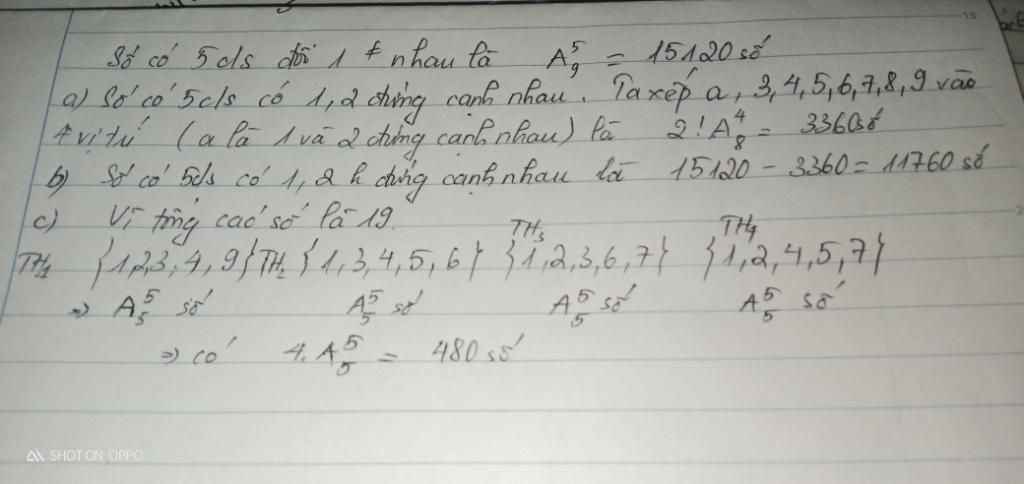 Số có 5 c/s đôi 1 ≠ nhau là A₉⁵ = 15120 số
a) Số có 5 c/s có 1, 2 đứng cạnh nhau. Ta xếp a, 3, 4, 5, 6, 7, 8, 9 vào
4 vị trí (a là 1 và 2 đứng cạnh nhau) là 2! A₈⁴ = 3360 số
b) Số có 5 c/s có 1, 2 k đứng cạnh nhau là 15120 - 3360 = 11760 số
c) Vì tổng các số là 19.
TH₁ {1,2,3,4,9} TH₂ {1,3,4,5,6} TH₃ {1,2,3,6,7} TH₄ {1,2,4,5,7}
⇒ A₅⁵ số A₅⁵ số A₅⁵ số A₅⁵ số
⇒ có 4. A₅⁵ = 480 số
SHOT ON OPPO